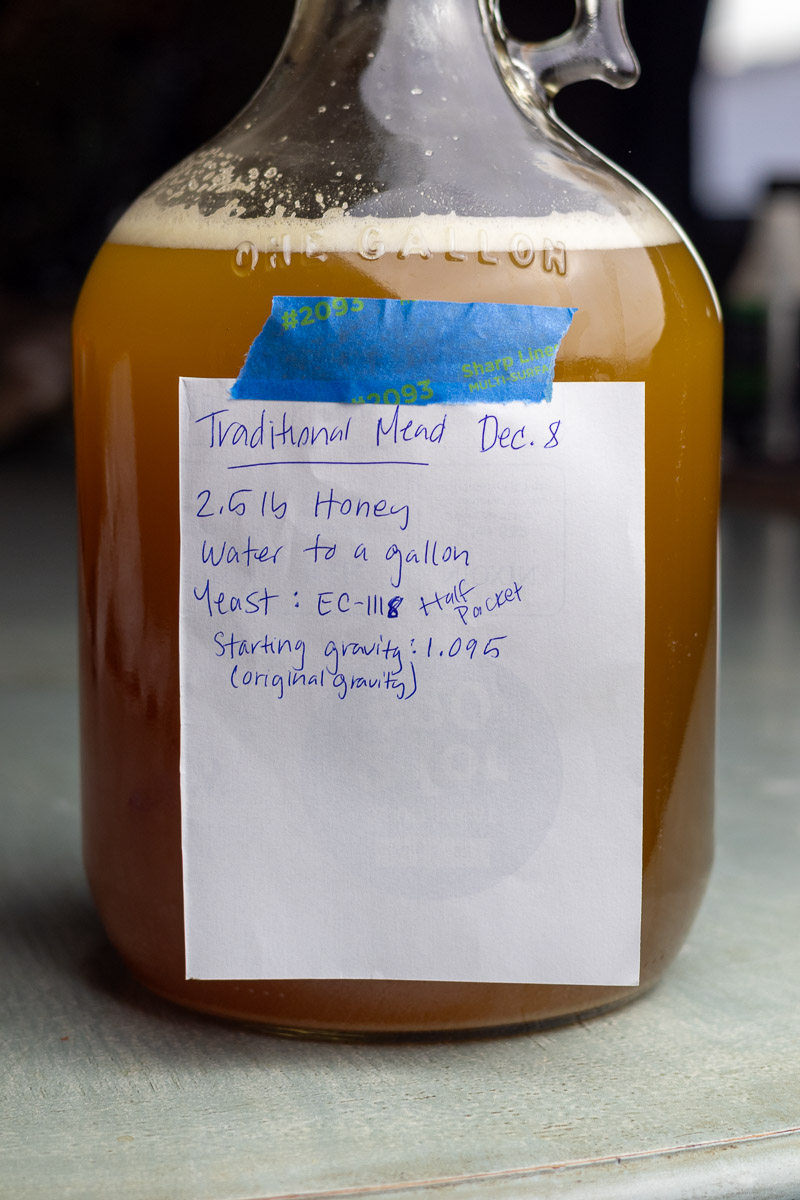 ONE GALLON
#2093
Sharp Lines
MULTI-SURFA
#2093
Traditional Mead Dec. 8
2.5 lb Honey
Water to a gallon
Yeast: EC-1118 Half Packet
Starting gravity: 1.095
(original gravity)